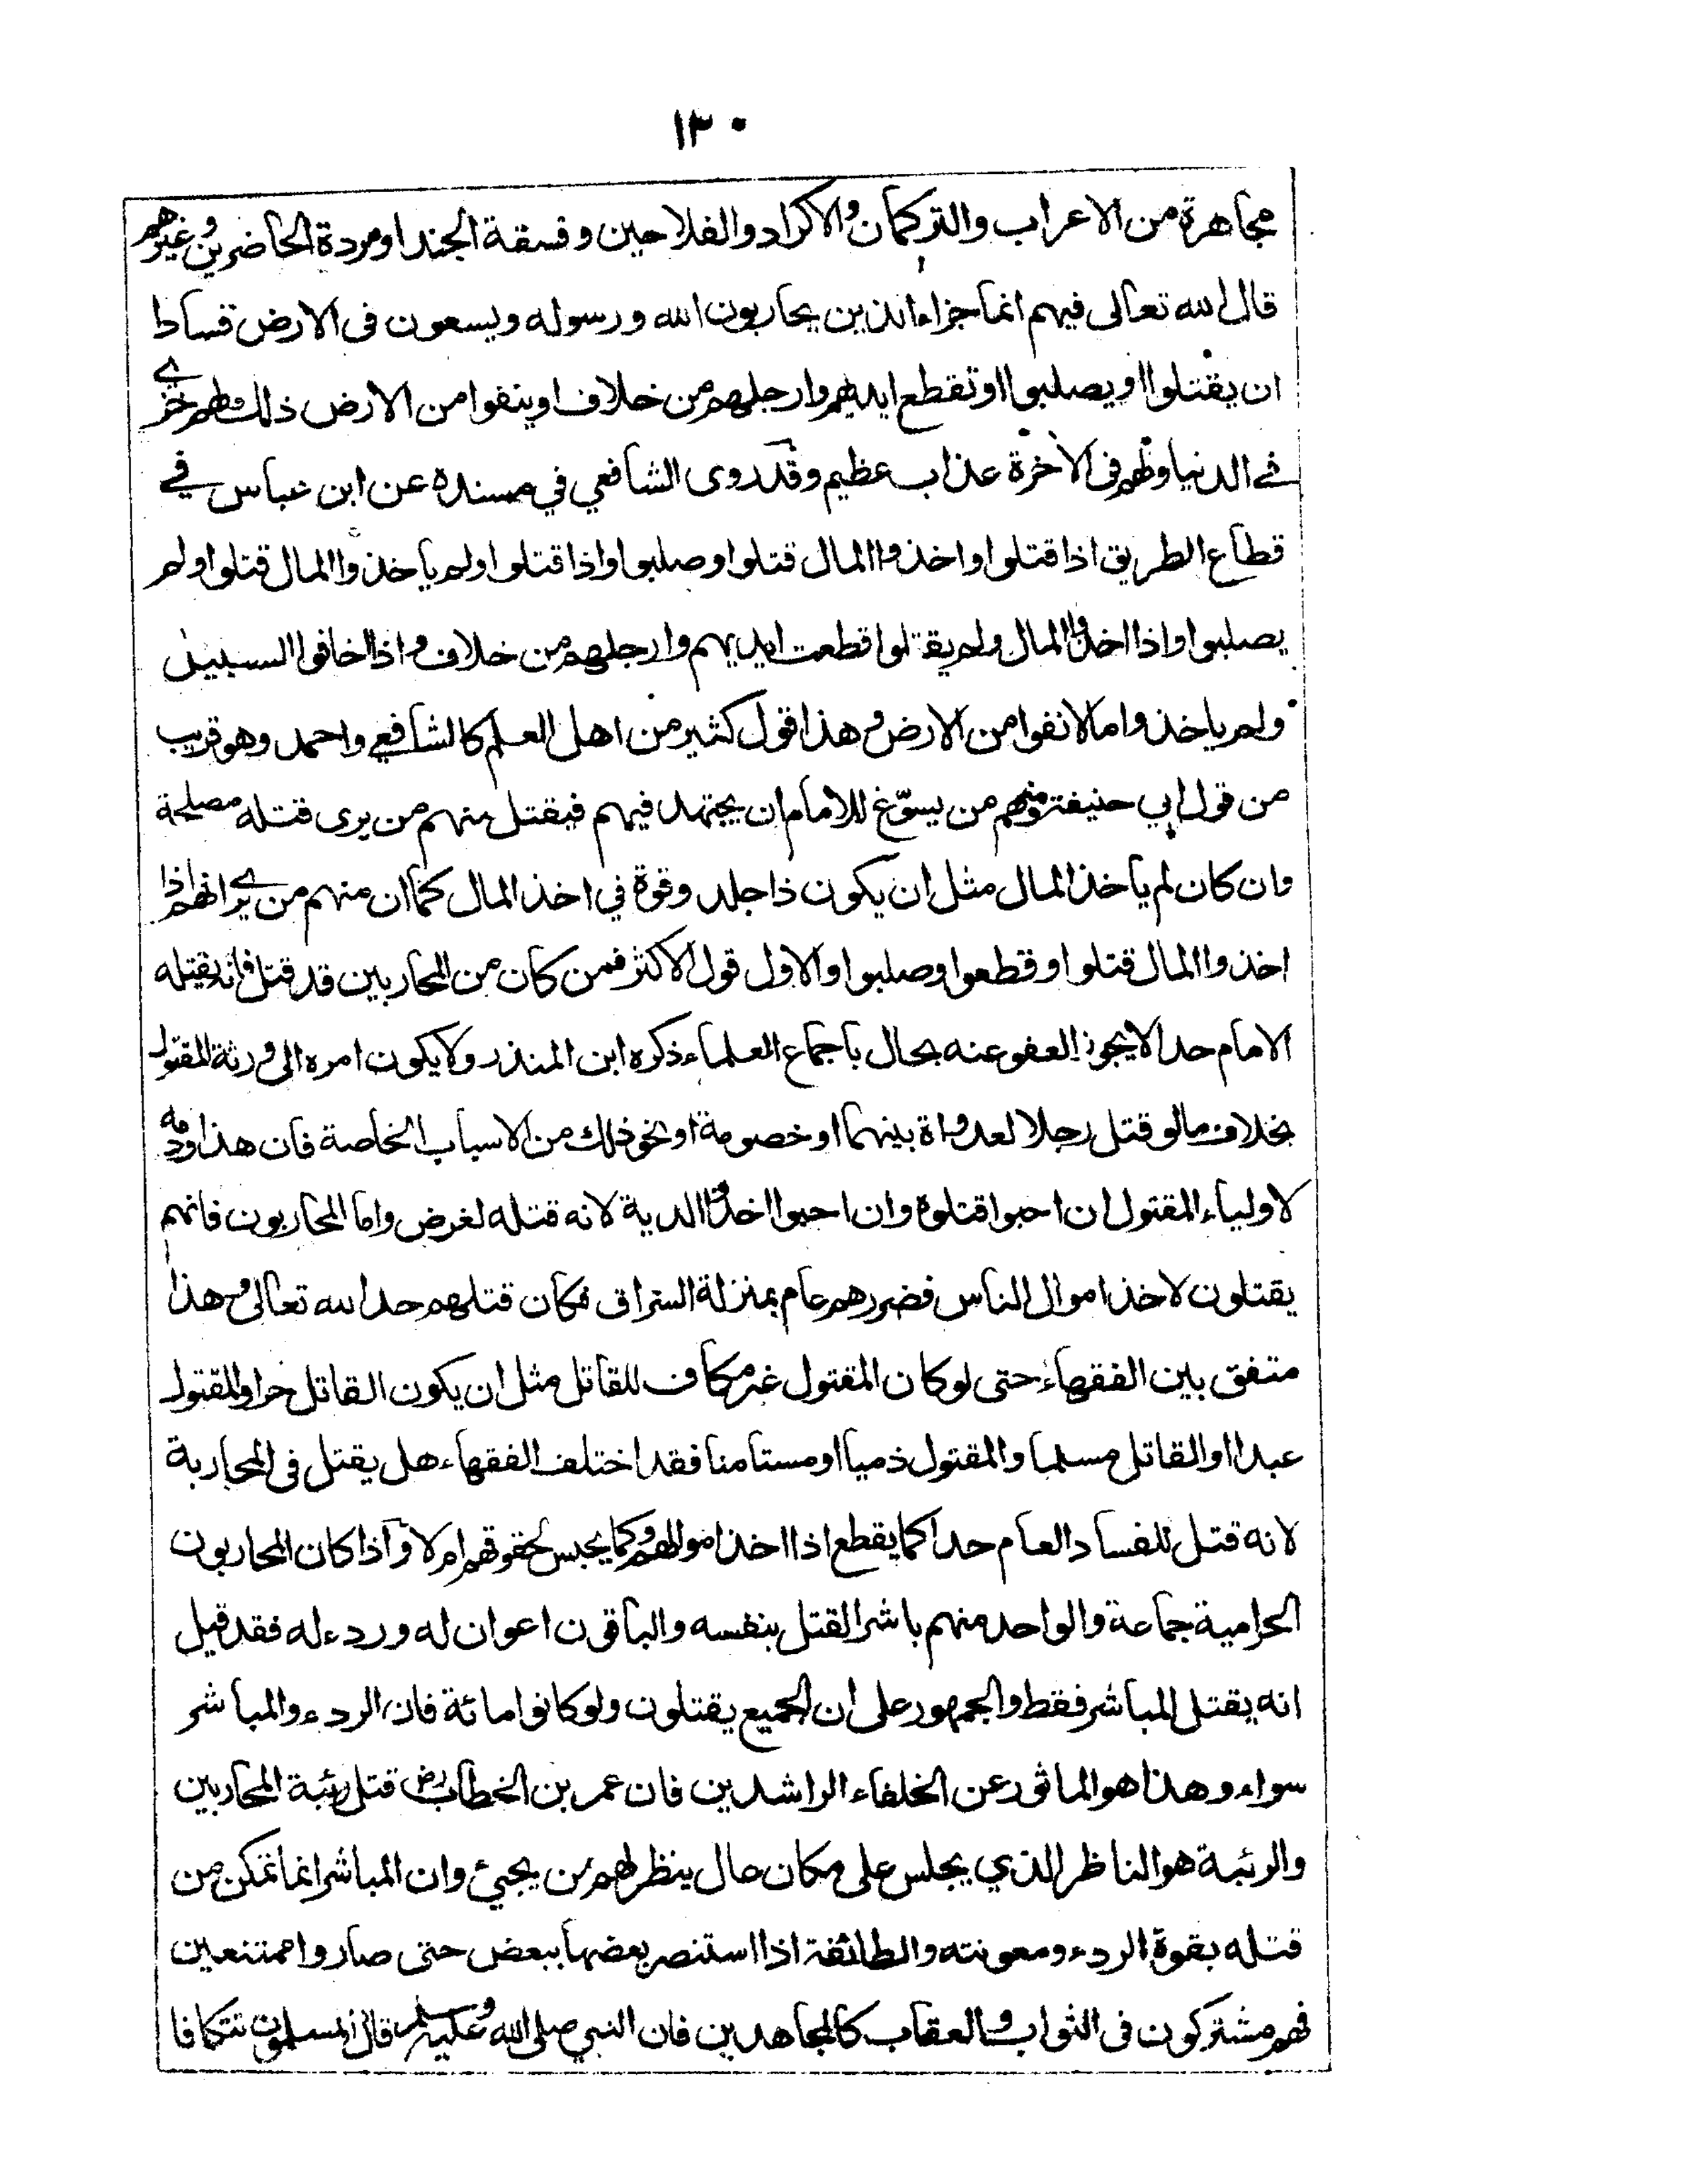 ١٣٠
مجاهرة من الاعراب والتركمان والاكراد والفلاحين وفسقة الجند او مردة الحاضرين وغيرهم
قال الله تعالى فيهم انما جزاء الذين يحاربون الله ورسوله ويسعون فى الارض فسادا
ان يقتلوا او يصلبوا او تقطع ايديهم وارجلهم من خلاف او ينفوا من الارض ذلك لهم خزي
في الدنيا ولهم فى الاخرة عذاب عظيم وقد روى الشافعي في مسنده عن ابن عباس في
قطاع الطريق اذا قتلوا واخذوا المال قتلوا وصلبوا واذا قتلوا ولم ياخذوا المال قتلوا ولم
يصلبوا واذا اخذوا المال ولم يقتلوا قطعت ايديهم وارجلهم من خلاف واذا اخافوا السبيل
ولم ياخذوا مالا نفوا من الارض وهذا قول كثير من اهل العلم كالشافعي واحمد وهو قريب
من قول ابي حنيفة ومنهم من يسوّغ للامام ان يجتهد فيهم فيقتل منهم من يرى قتله مصلحة
وان كان لم ياخذ المال مثل ان يكون ذا جلد وقوة في اخذ المال كما ان منهم من يرى انهم اذا
اخذوا المال قتلوا وقطعوا وصلبوا والاول قول الاكثر فمن كان من المحاربين قد قتل فانه يقتله
الامام حدا لا يجوز العفو عنه بحال باجماع العلماء ذكره ابن المنذر ولا يكون امره الى ورثة المقتول
بخلاف ما لو قتل رجلا لعداوة بينهما او خصومة او نحو ذلك من الاسباب الخاصة فان هذا دمه
لاولياء المقتول ان احبوا قتلوه وان احبوا اخذوا الدية لانه قتله لغرض واما المحاربون فانهم
يقتلون لاخذ اموال الناس فضررهم عام بمنزلة السراق فكان قتلهم حدا لله تعالى وهذا
متفق بين الفقهاء حتى لو كان المقتول غير مكاف للقاتل مثل ان يكون القاتل حرا والمقتول
عبدا او القاتل مسلما والمقتول ذميا او مستامنا فقد اختلف الفقهاء هل يقتل فى المحاربة
لانه قتل للفساد العام حدا كما يقطع اذا اخذ اموالهم وكما يحبس لحقوقهم ام لا واذا كان المحاربون
الحرامية جماعة والواحد منهم باشر القتل بنفسه والباقون اعوان له وردء له فقد قيل
انه يقتل المباشر فقط والجمهور على ان الجميع يقتلون ولو كانوا مائة فان الردء والمباشر
سواء وهذا هو الماثور عن الخلفاء الراشدين فان عمر بن الخطاب رض قتل رئبة المحاربين
والرئبة هو الناظر الذي يجلس على مكان عال ينظر لهم من يجيئ وان المباشر انما تمكن من
قتله بقوة الردء ومعونته والطائفة اذا استنصر بعضها ببعض حتى صاروا ممتنعين
فهم مشتركون فى الثواب والعقاب كالمجاهدين فان النبي صلى الله عليه وسلم قال المسلمون تتكافا